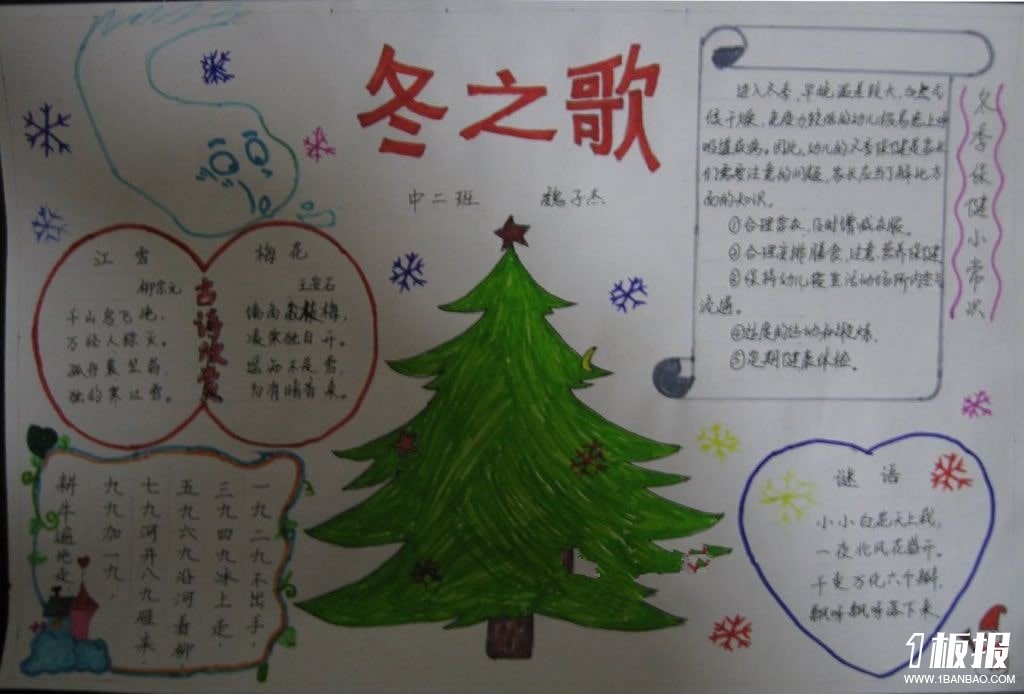 冬之歌
中二班 魏子杰
江雪
柳宗元
千山鸟飞绝,
万径人踪灭。
孤舟蓑笠翁,
独钓寒江雪。
梅花
王安石
墙角数枝梅,
凌寒独自开。
遥知不是雪,
为有暗香来。
古诗欣赏
一九二九不出手,
三九四九冰上走,
五九六九沿河看柳
七九河开八九雁来,
九九加一九,
耕牛遍地走
冬季保健小常识
进入冬季,早晚温差较大,
低干燥,免疫力较低的幼儿极易患上呼
吸道疾病。因此,幼儿的冬季保健是家长
们需要注意的问题,家长应当了解此方
面的知识。
①合理穿衣,及时增减衣服。
②合理安排膳食,注意营养保健
③保持幼儿寝室活动场所内空气
流通。
④适度的运动和锻炼。
⑤定期健康体检。
谜语
小小白花天上栽,
一夜北风花盛开。
千变万化六个瓣,
飘呀飘呀落下来
1板报
WWW.1BANBAO.COM